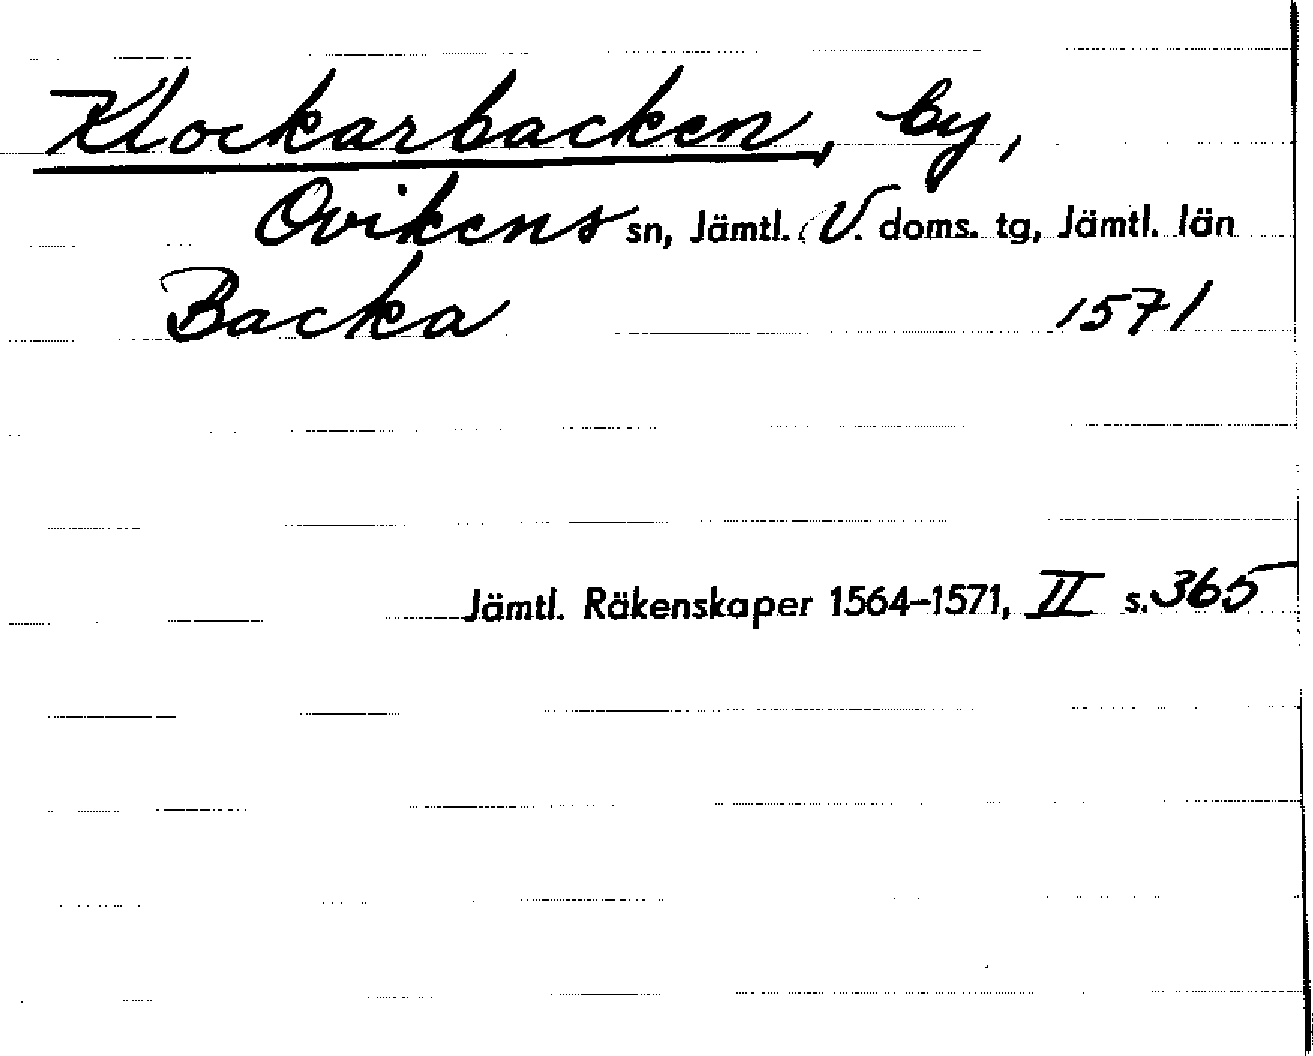 Klockarbacken, by,
Ovikens sn, Jämtl. V. doms. tg, Jämtl. län
Backa 1571
Jämtl. Räkenskaper 1564-1571, II s. 365